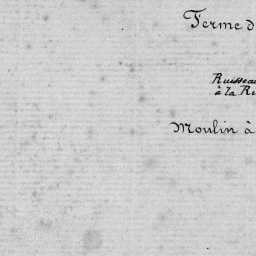 Ferme d
Ruissea
à la Ru
Moulin à